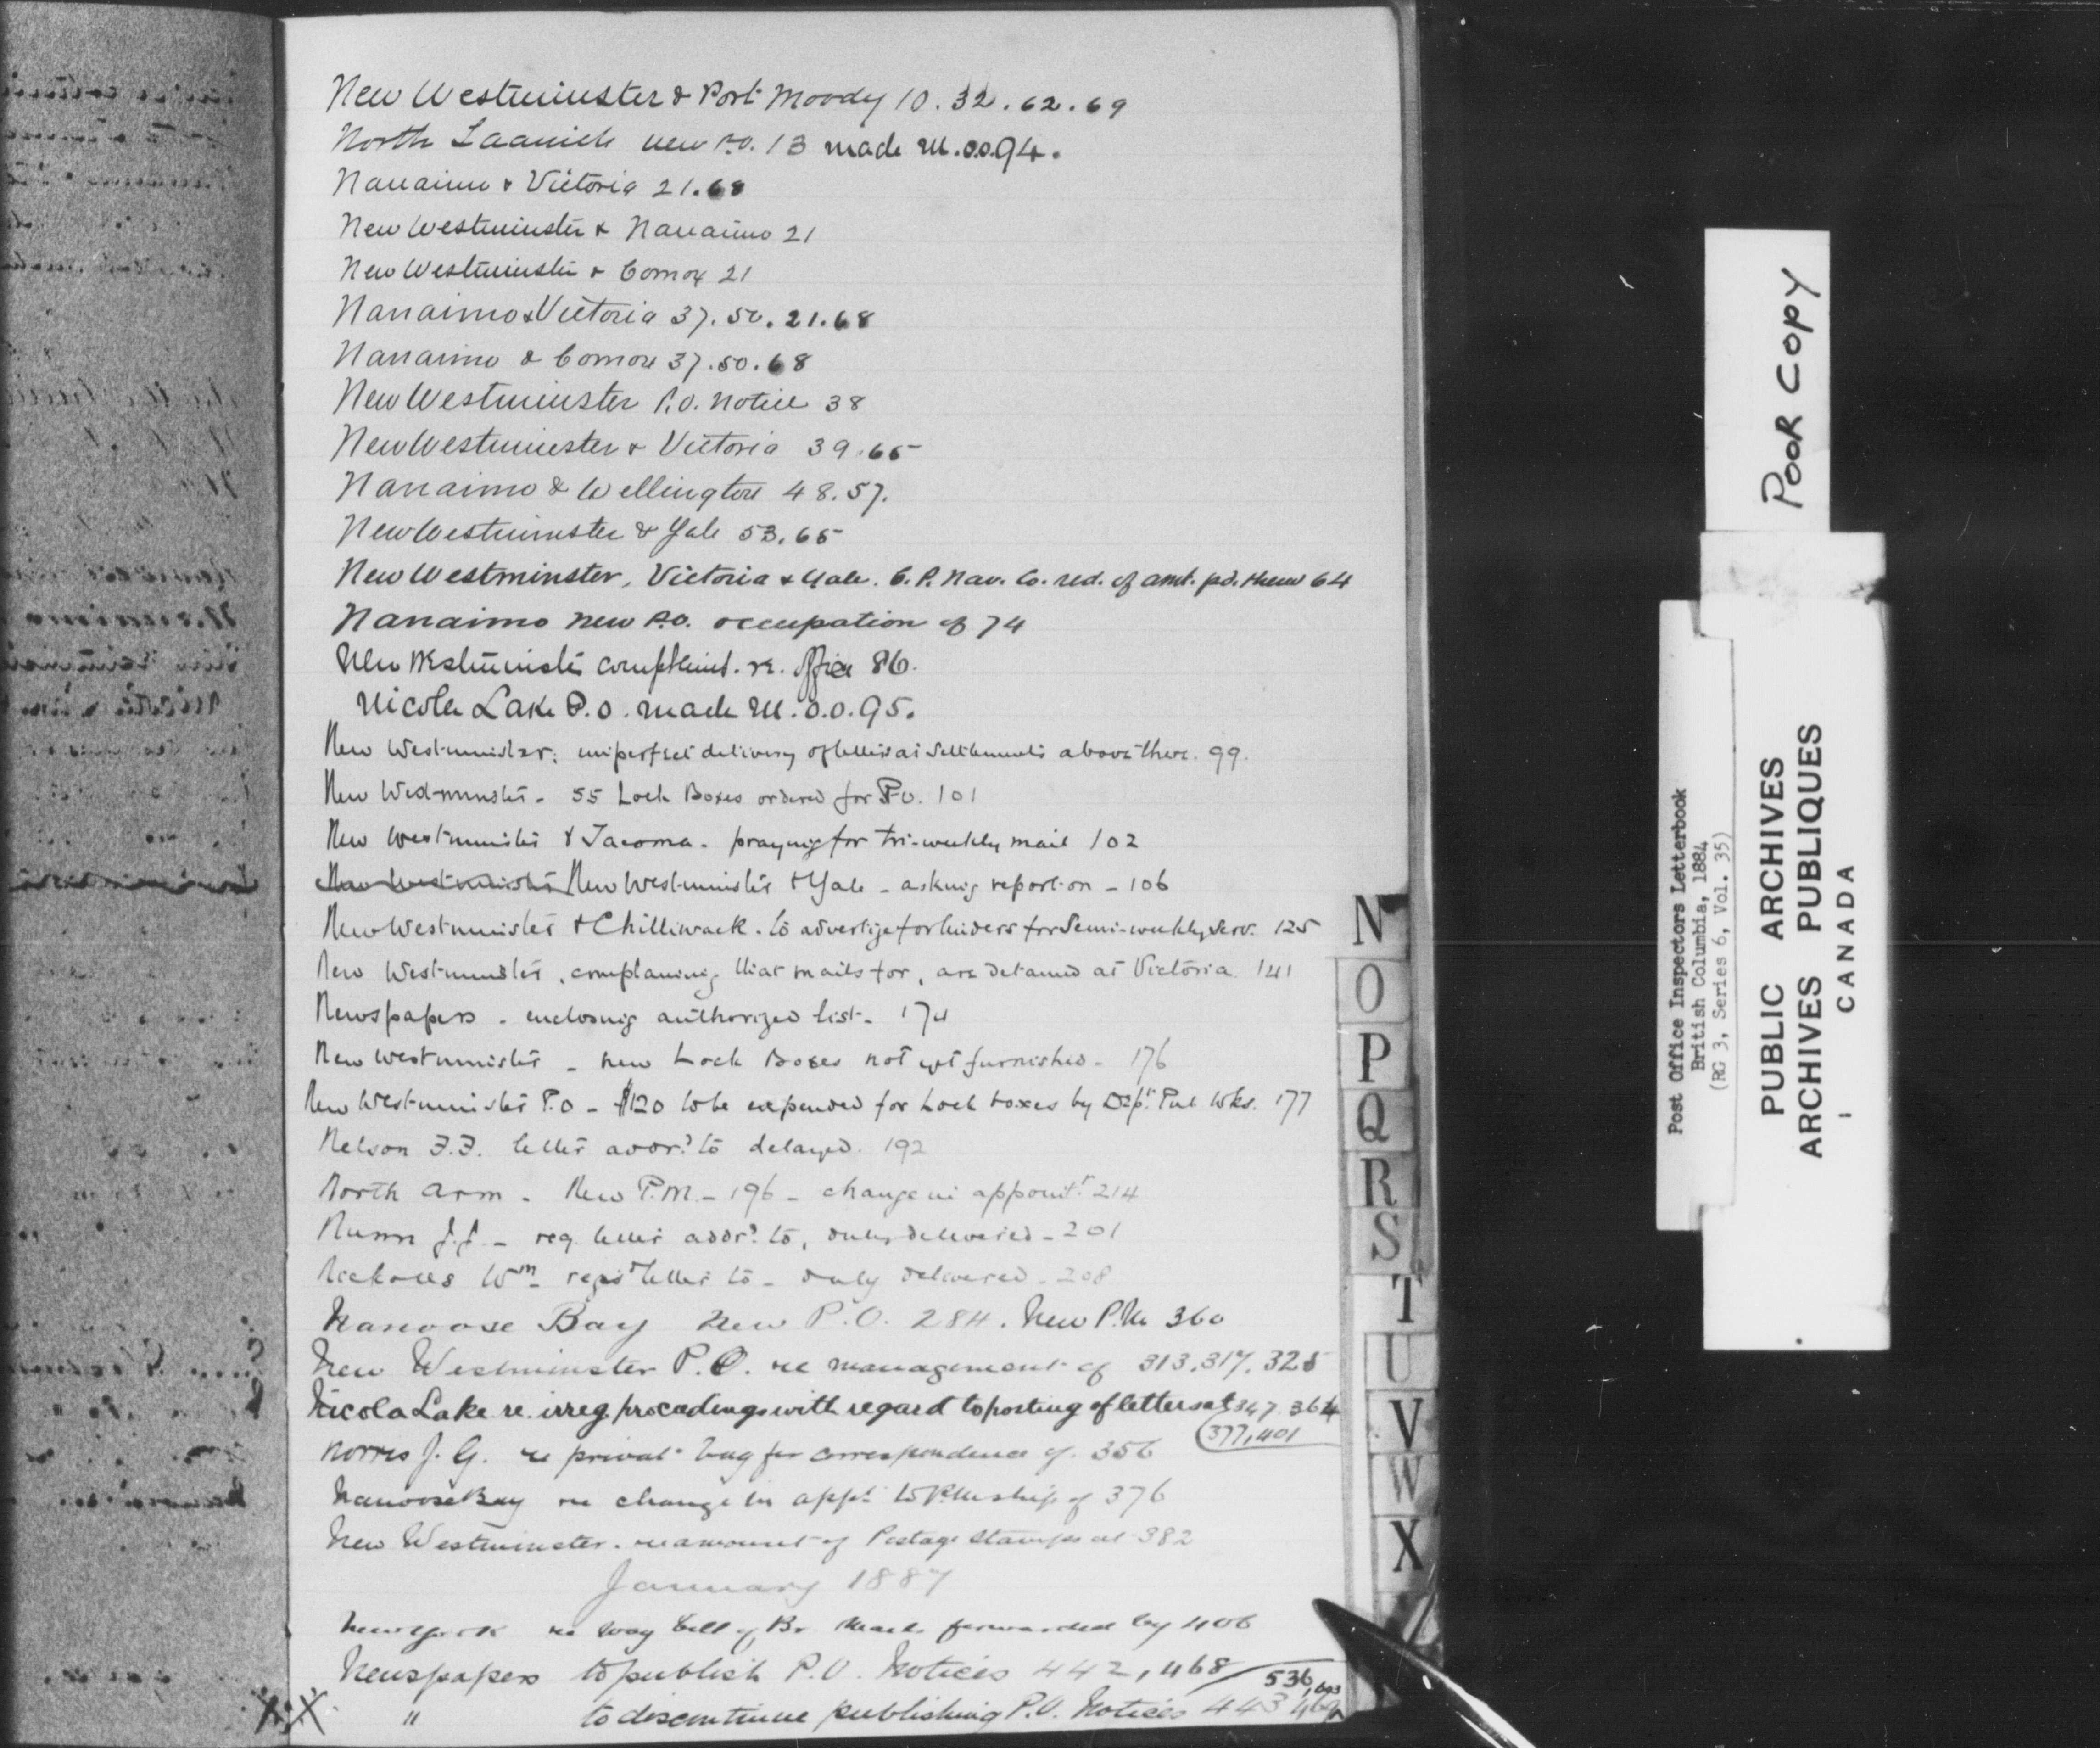 New Westminster & Port Moody 10. 32. 62. 69
North Saanich new P.O. 13 made M.O.O. 94.
Nanaimo & Victoria 21. 68
New Westminster & Nanaimo 21
New Westminster & Comox 21
Nanaimo & Victoria 37. 50. 21. 68
Nanaimo & Comox 37. 50. 68
New Westminster P.O. notice 38
New Westminster & Victoria 39. 65
Nanaimo & Wellington 48. 57.
New Westminster & Yale 53. 65
New Westminster, Victoria & Yale. C. P. Nav. Co. red. of amt. pd. them 64
Nanaimo new P.O. occupation of 74
New Westminster complaint. re. office 86.
Nicola Lake P.O. made M.O.O. 95.
New Westminster: imperfect delivery of letters at settlements above there. 99.
New Westminster - 55 Lock Boxes ordered for P.O. 101
New Westminster & Tacoma - praying for tri-weekly mail 102
New Westminster New Westminster & Yale - asking report on - 106
New Westminster & Chilliwack. to advertize for tenders for Semi-weekly Serv. 125
New Westminster, complaining that mails for, are detained at Victoria 141
Newspapers - enclosing authorized list - 174
New Westminster - new Lock Boxes not yet furnished - 176
New Westminster P.O - $120 to be expended for Lock boxes by Dept. Pub Wks. 177
Nelson F.F. letter addrd to delayed. 192
North Arm - New P.M. - 196 - change in appoint.t 214
Nunn J.J. - reg. letter addrd to, duly delivered - 201
Wm - regd letter to - duly delivered - 208
Nanoose Bay New P.O. 284. New P.M 360
New Westminster P.O. re management of 313, 317, 325
Nicola Lake re. irreg. proceedings with regard to posting of letters at 347 364
377, 401
Norris J. G. re private bag for correspondence of 356
Nanoose Bay re change in appt to PMship of 376
New Westminster. re amount of Postage stamps at 382
January 1887
New York re way bill of Br Mails forwarded by 406
Newspapers to publish P.O. Notices 442, 468
536, 603
" to discontinue publishing P.O. Notices 443 469
XX
N
O
P
Q
R
S
T
U
V
W
X
POOR COPY
Post Office Inspectors Letterbook
British Columbia, 1884
(RG 3, Series 6, Vol. 35)
PUBLIC ARCHIVES
ARCHIVES PUBLIQUES
CANADA